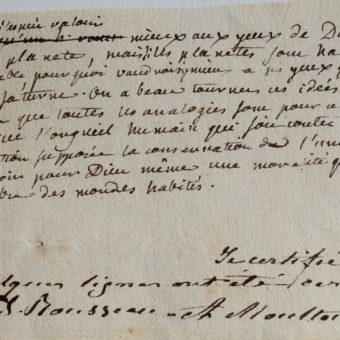 valoir
mieux aux yeux de Di
planete, mais si les planetes sont ha
ble pourquoi vaudrois-je mieux a ses yeux q
Saturne. On a beau tourner ces idées
que toutes les analogies sont pour ce
l'orgueil humain qui soit contre
tion supposée la conservation de l'uni
pour Dieu même une moralité qu
bre des mondes habités.
Je certifie
lques lignes ont été
J. Rousseau — Moultou